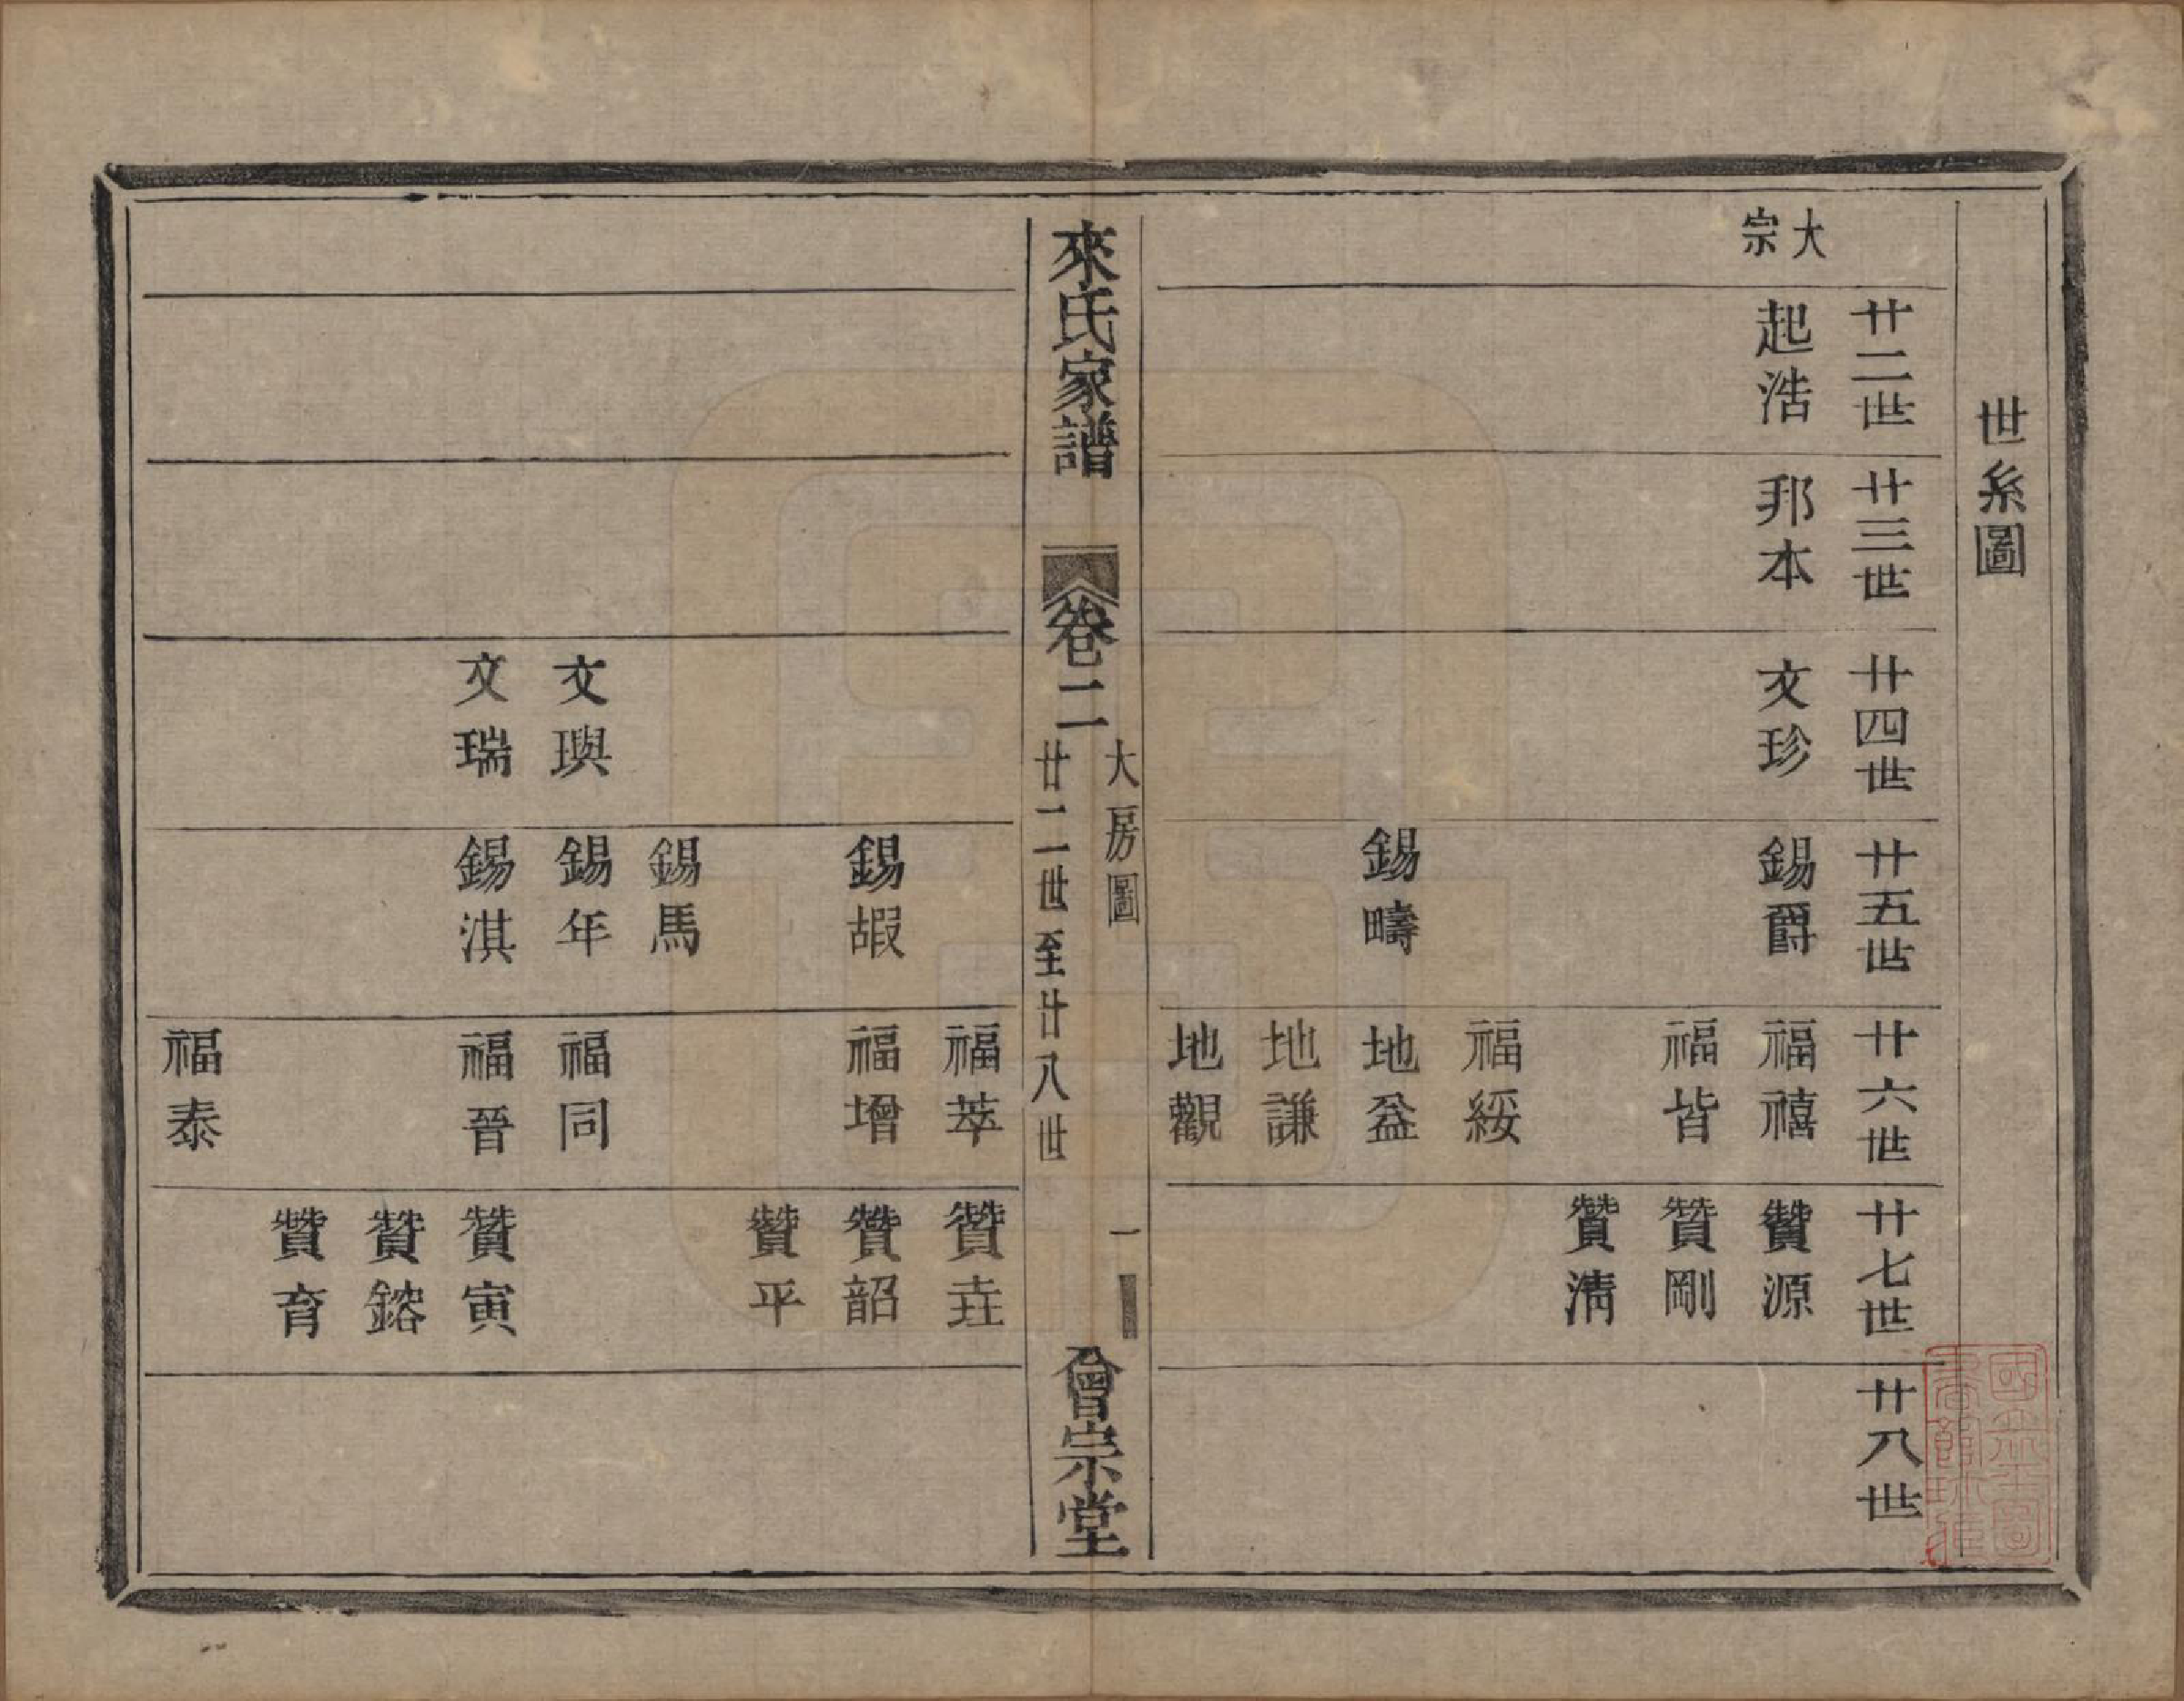 世系圖
廿二世 廿三世 廿四世 廿五世 廿六世 廿七世 廿八世
大宗
起浩 邦本 文珍 錫爵 福禧 贊源
福皆 贊剛
贊淸
福綏
錫疇 地益
地謙
地觀
來氏家譜 卷二 大房圖 廿二世至廿八世 一 會宗堂
福萃 贊垚
錫嘏 福增 贊韶
贊平
錫馬
文璵 錫年 福同
文瑞 錫淇 福晉 贊寅
贊鎔
贊育
福泰